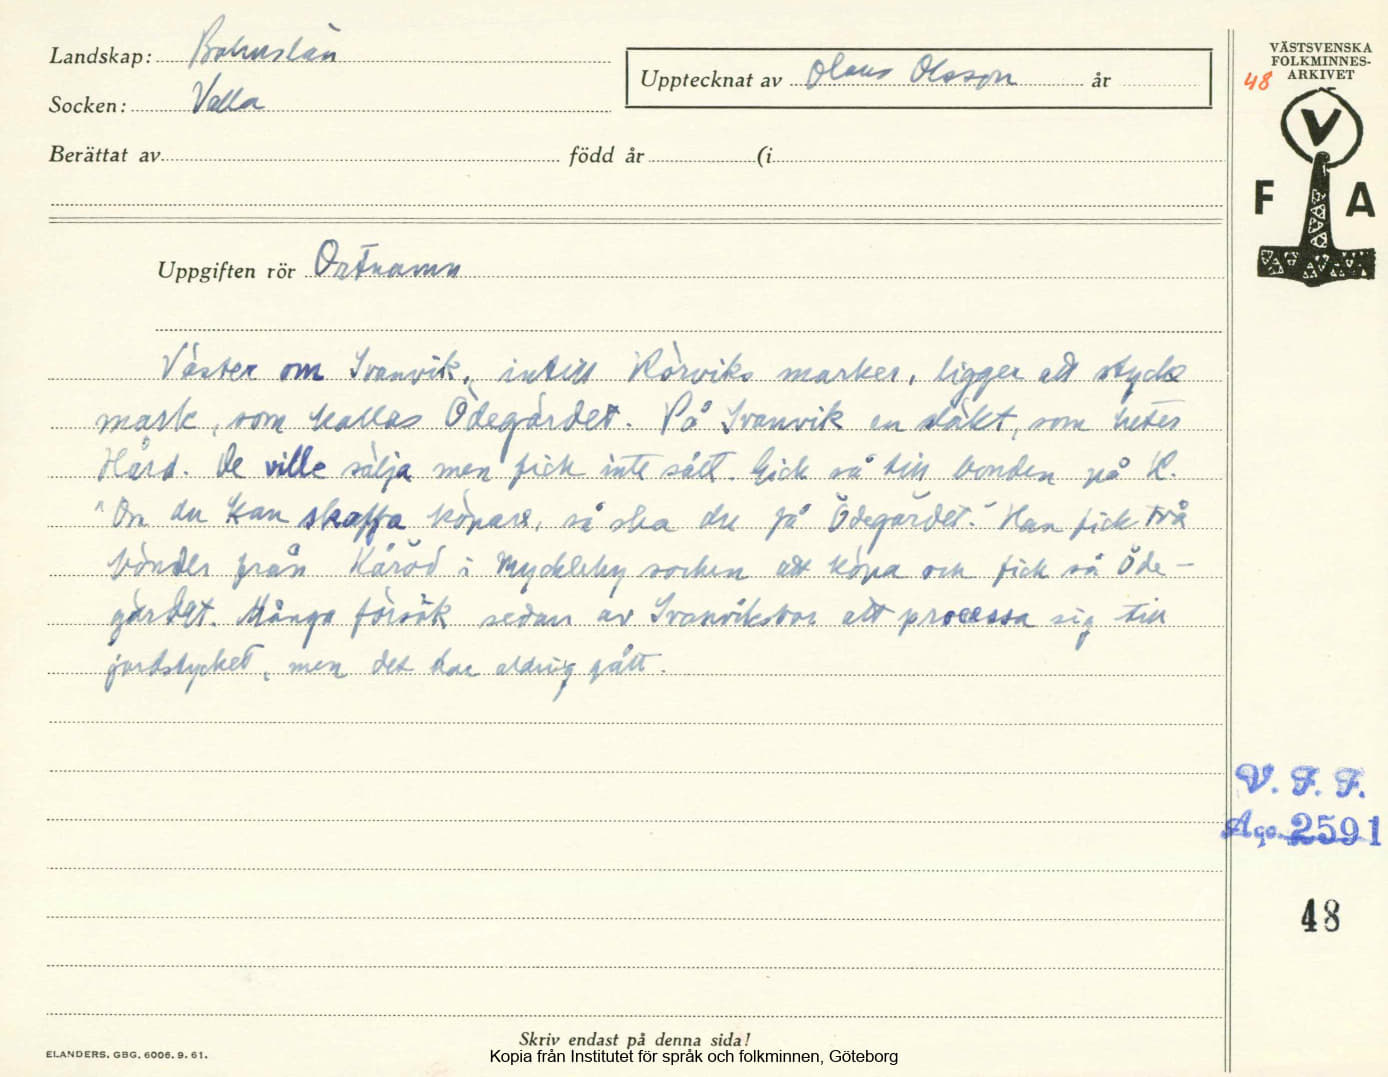 Landskap: Bohuslän
Socken: Valla
Upptecknat av Olaus Olsson år
Berättat av född år (i
VÄSTSVENSKA
FOLKMINNES-
ARKIVET
48
V
F A
Uppgiften rör Ortnamn
Väster om Svanvik, intill Rörviks marker, ligger ett stycke
mark, som kallas Ödegärdet. På Svanvik en släkt, som hetes
Hård. De ville sälja men fick inte sålt. Gick så till bonden på R.
"Om du kan skaffa köpare, så ska du få Ödegärdet." Han fick två
bönder från Kåröd i Myckleby socken att köpa och fick så Öde-
gärdet. Många försök sedan av Svanviksbor att processa sig till
jordstycket, men det har aldrig gått.
V. F. F.
Acc. 2591
48
Skriv endast på denna sida!
ELANDERS. GBG. 6006. 9. 61.
Kopia från Institutet för språk och folkminnen, Göteborg